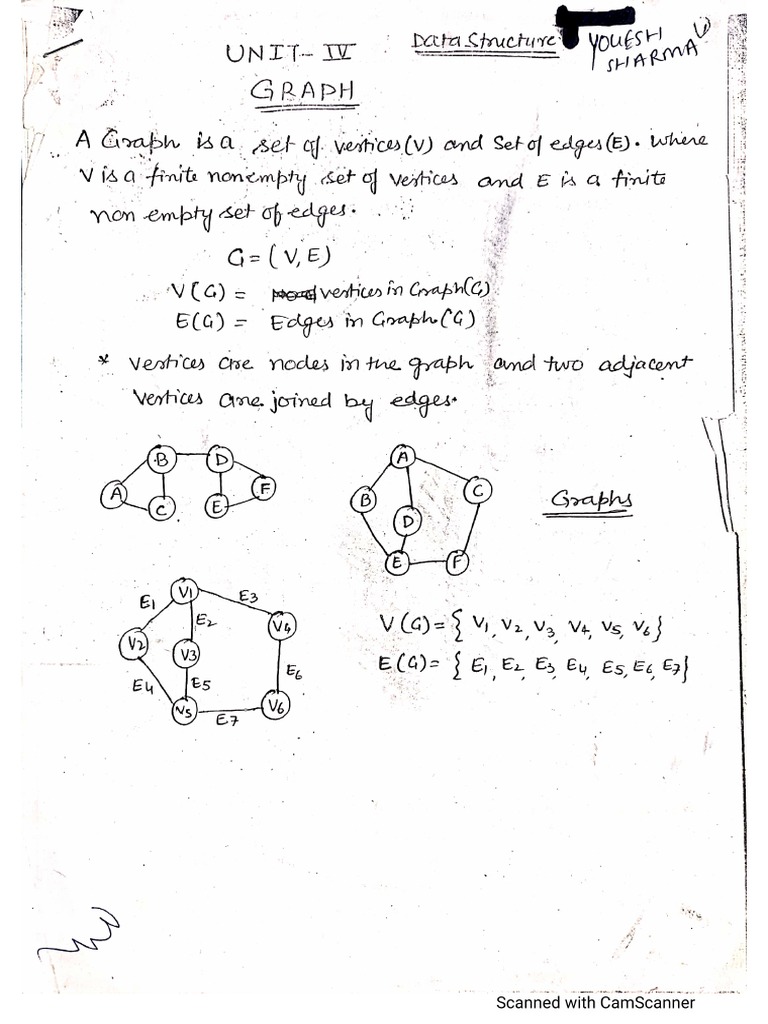 Data Structure
YOUESH
SHARMA
UNIT-IV
GRAPH
A Graph is a set of vertices(V) and Set of edges(E). where
V is a finite nonempty set of vertices and E is a finite
non empty set of edges.
G = (V, E)
V(G) = vertices in Graph(G)
E(G) = Edges in Graph(G)
* vertices are nodes in the graph and two adjacent
vertices are joined by edges.
A B C D E F
A B C D E F
Graphs
V1 V2 V3 V4 V5 V6
E1 E2 E3 E4 E5 E6 E7
V(G) = { V1, V2, V3, V4, V5, V6 }
E(G) = { E1, E2, E3, E4, E5, E6, E7 }
Scanned with CamScanner